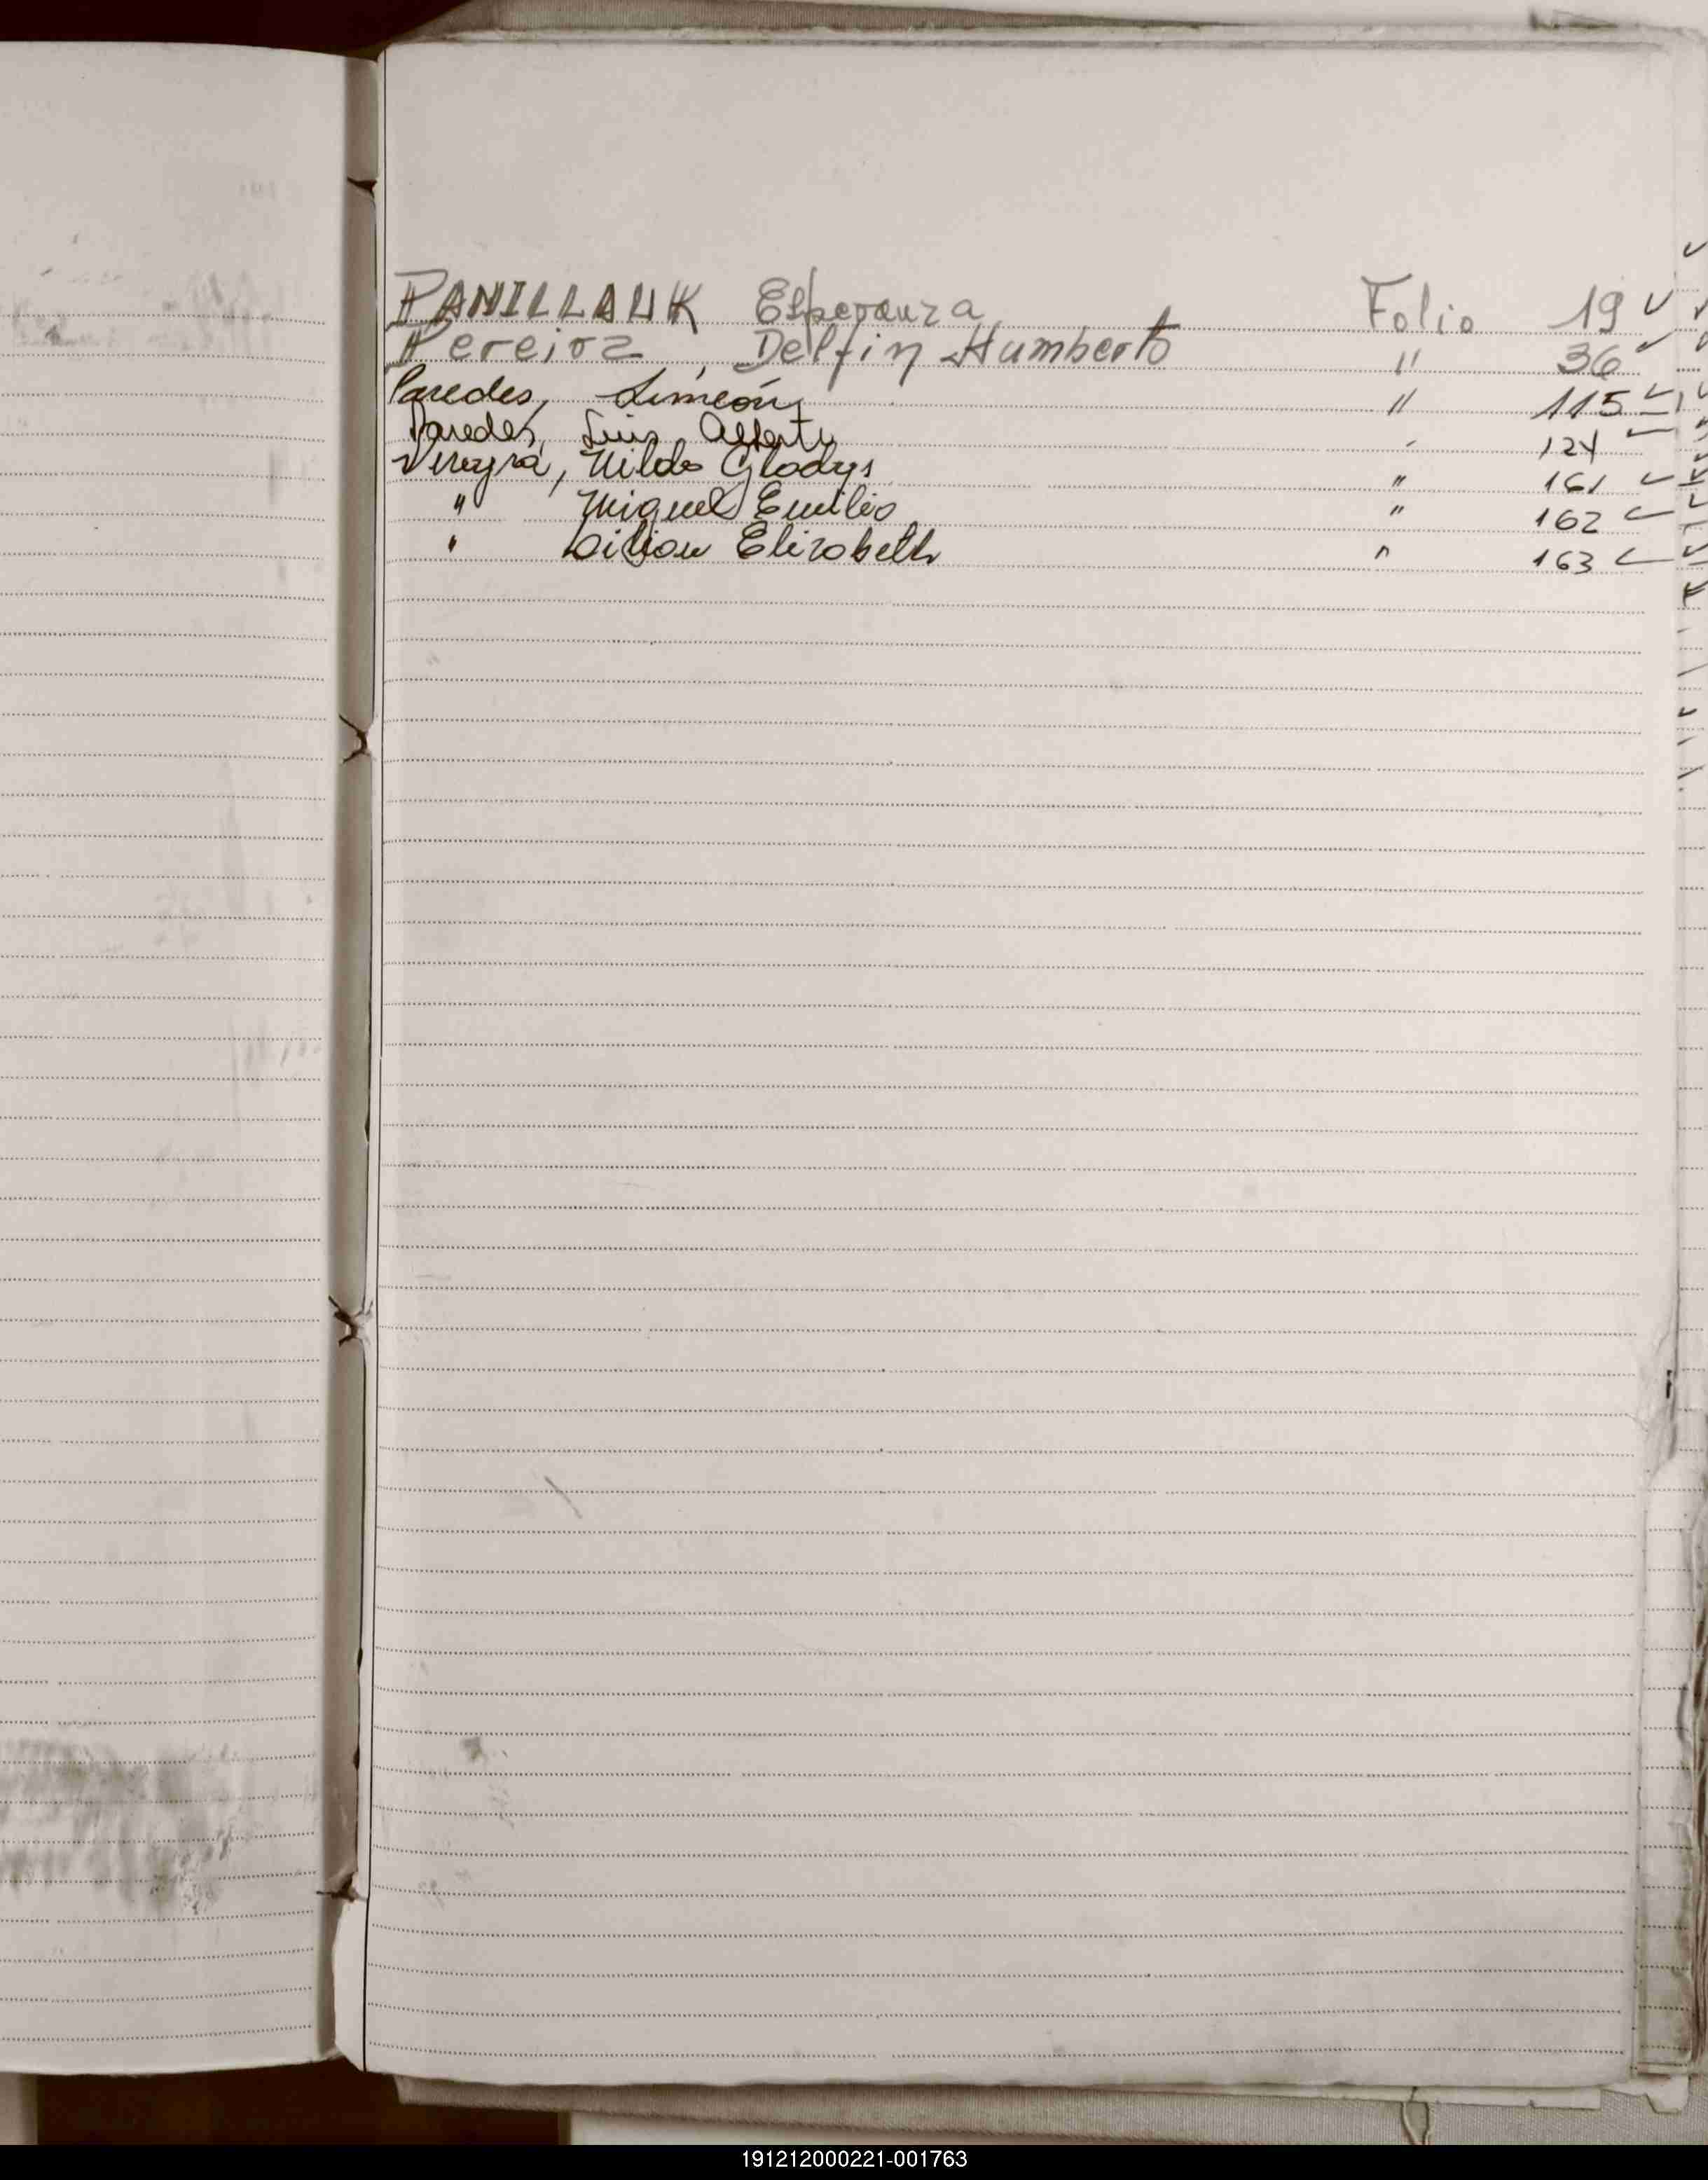 PANILLAUK Esperanza Folio 19
Pereira, Delfin Humberto " 36
Paredes, Simeón " 115
Paredes, Luis Alberto " 124
Pereyra, Nilda Gladys " 161
" Miguel Emilio " 162
" Lilian Elizabeth " 163
191212000221-001763